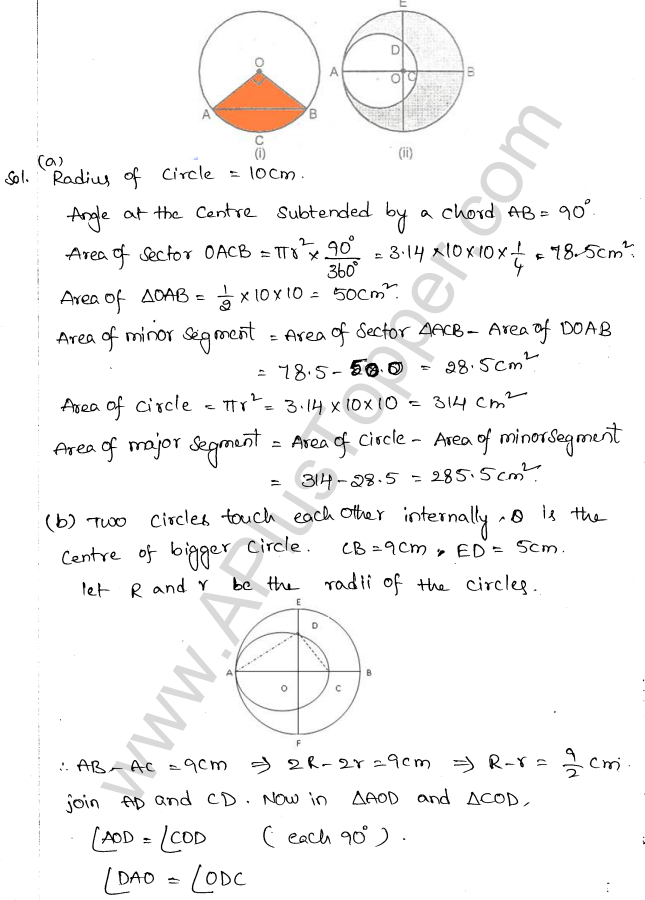 E
O
D
A
O
C
B
A
B
C
(i)
(ii)
(a)
Sol. Radius of Circle = 10cm.
Angle at the Centre Subtended by a chord AB = 90°.
Area of Sector OACB = πr² × 90°/360° = 3.14 × 10 × 10 × 1/4 = 78.5cm².
Area of ΔOAB = 1/2 × 10 × 10 = 50cm².
Area of minor Segment = Area of Sector ΔACB - Area of DOAB
= 78.5 - 50.0 = 28.5cm²
Area of Circle = πr² = 3.14 × 10 × 10 = 314 cm²
Area of major Segment = Area of Circle - Area of minorSegment
= 314 - 28.5 = 285.5cm².
(b) Two Circles touch each other internally, O is the
Centre of bigger Circle. CB = 9cm, ED = 5cm.
let R and r be the radii of the circles.
E
D
A
B
O
C
F
∴ AB - AC = 9cm ⇒ 2R - 2r = 9cm ⇒ R - r = 9/2 cm.
join AD and CD. Now in ΔAOD and ΔCOD,
∠AOD = ∠COD (each 90°).
∠DAO = ∠ODC
www.APlusTopper.com